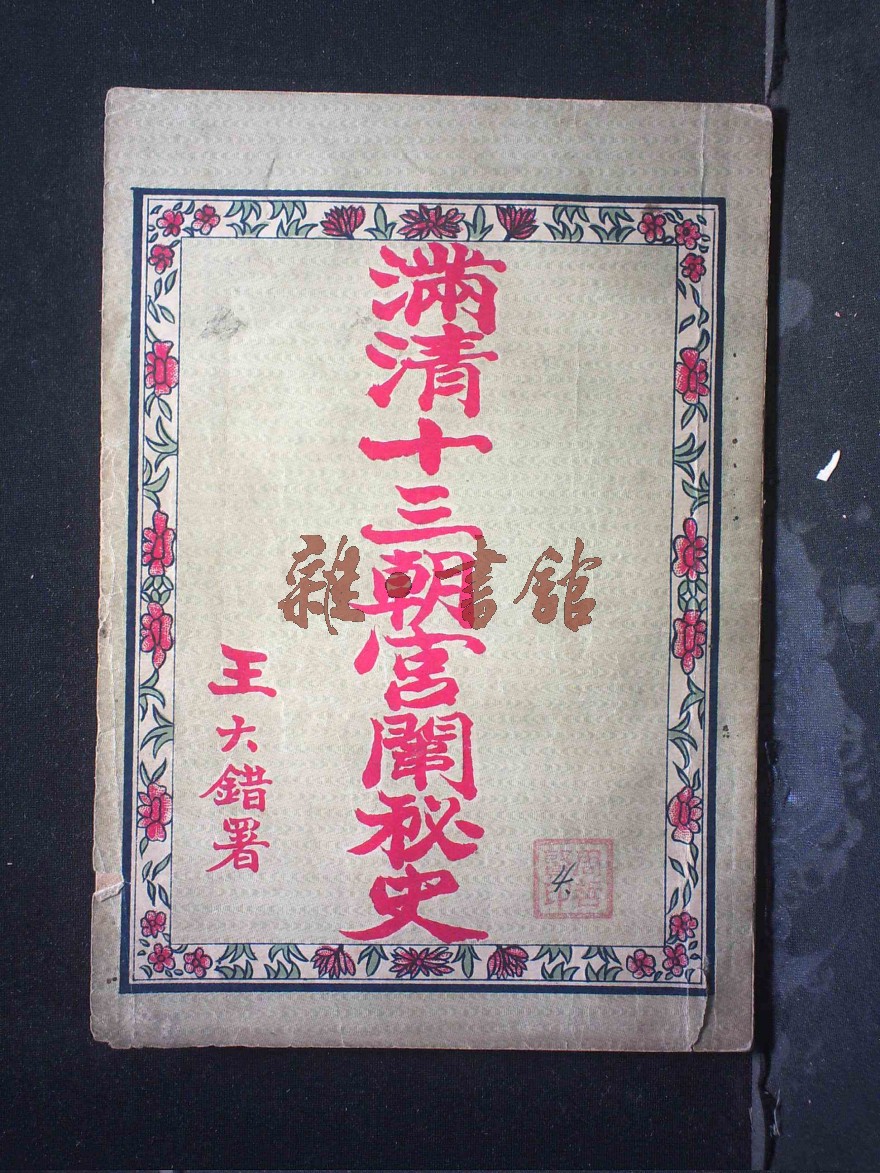 滿清十三朝宮闈秘史
王大錯署
雜·書館
4